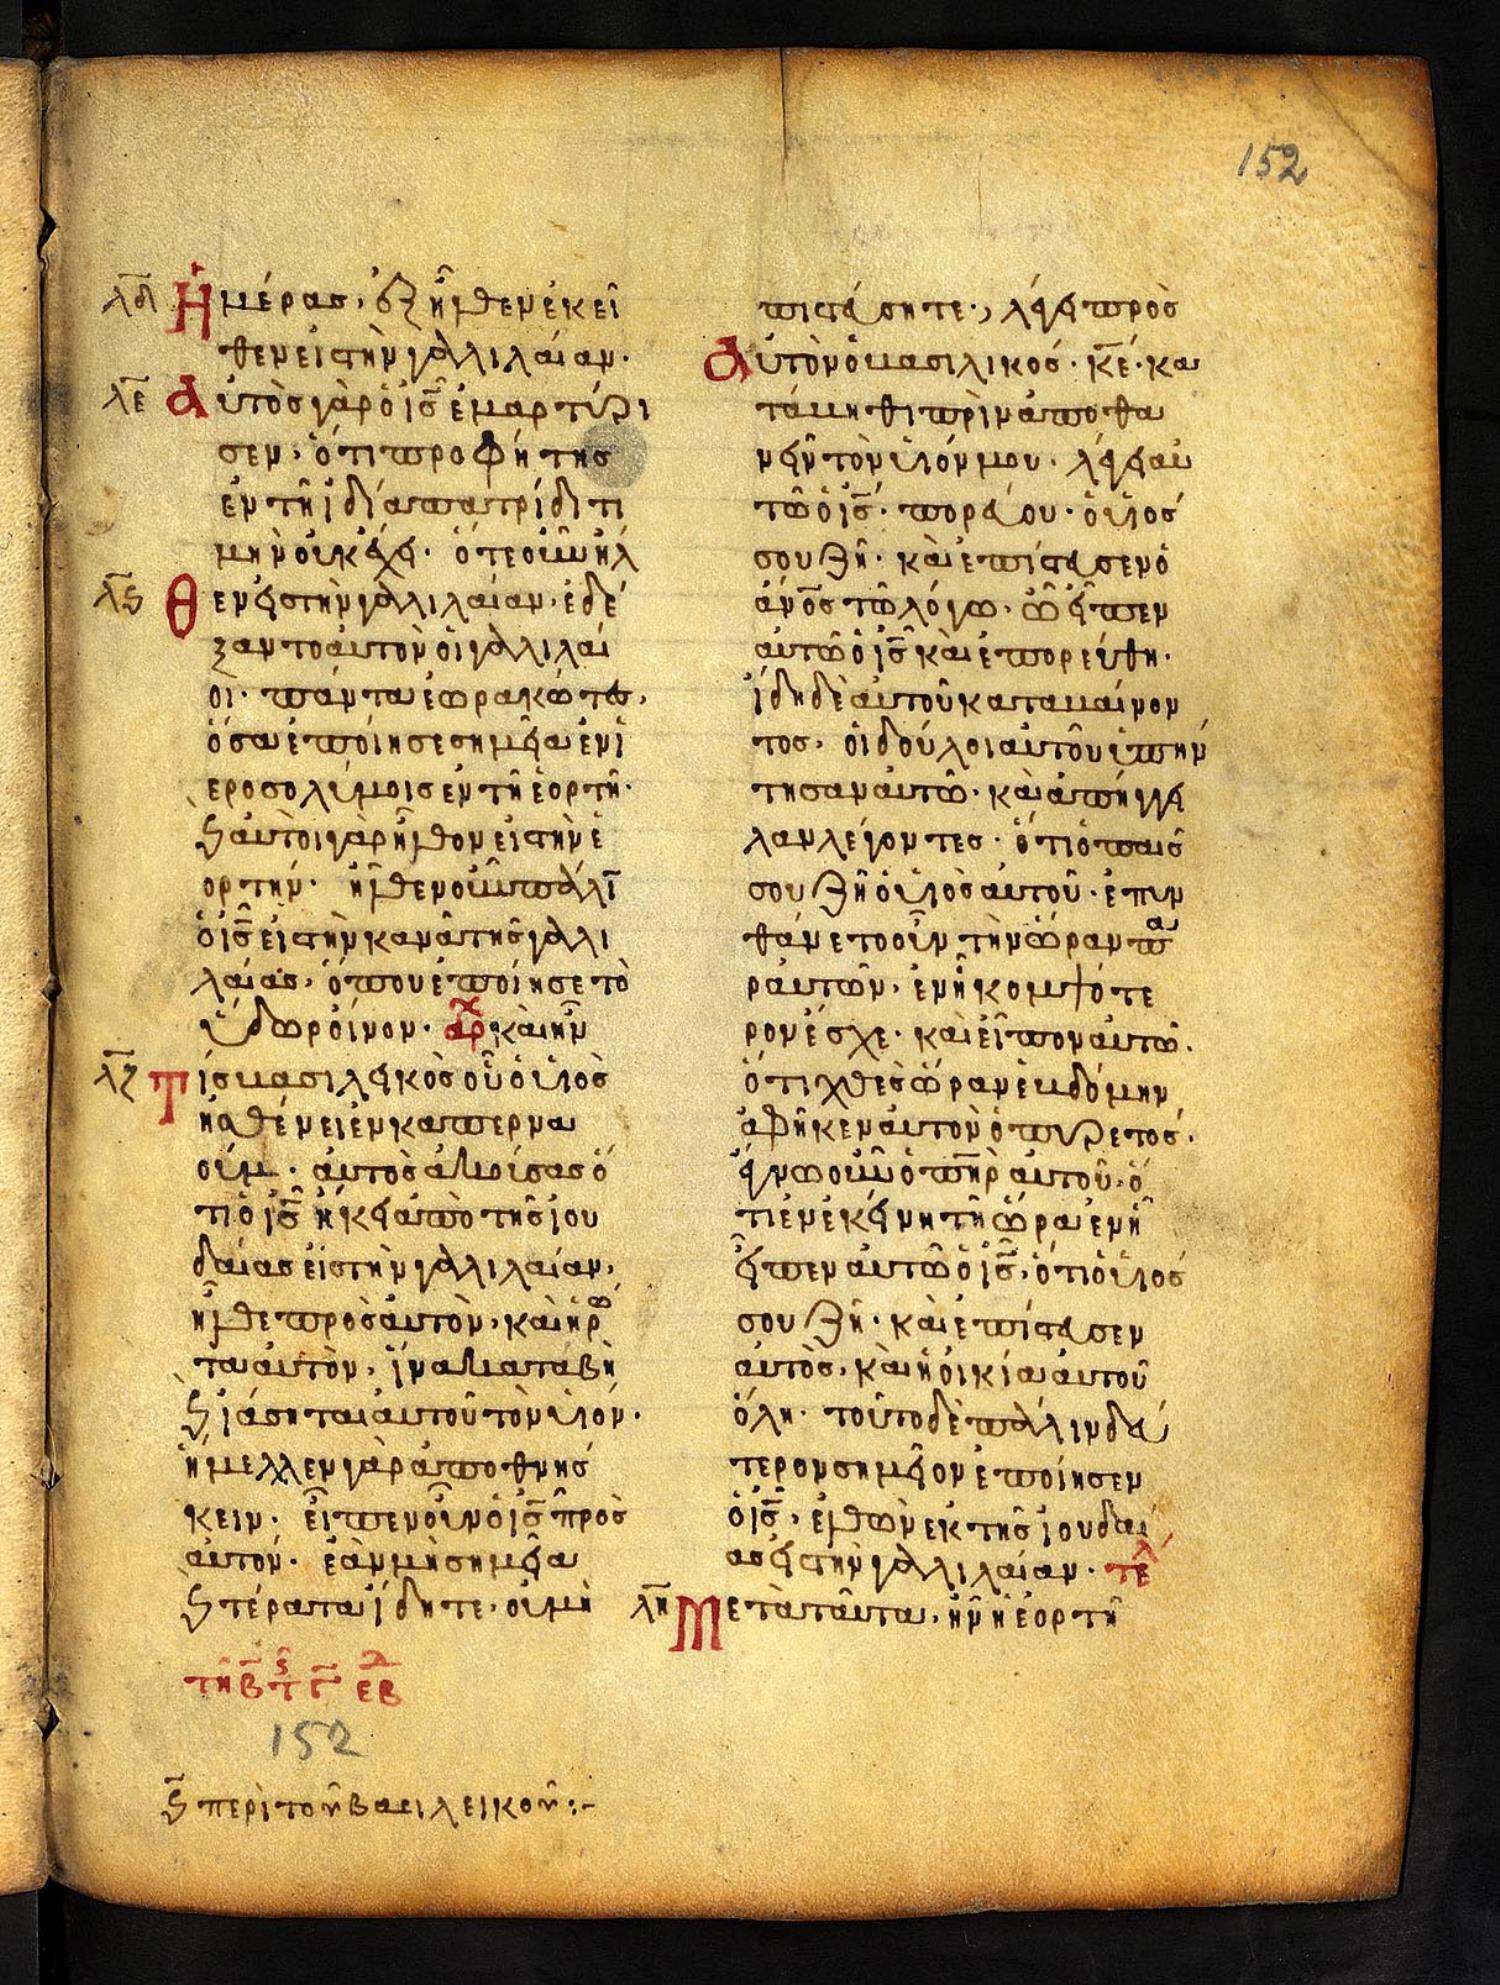 152
λδ Ἡμέρας· ἐξῆλθεν ἐκεῖ
θεν εἰς τὴν γαλιλαίαν·
λε Αὐτὸς γὰρ ὁ ις ἐμαρτύρη
σεν· ὅτι προφήτης
ἐν τῇ ἰδίᾳ πατρίδι τι
μὴν οὐκ ἔχει· ὅτε οὖν ἦλ
λϛ Θεν εἰς τὴν γαλιλαίαν· ἐδέ
ξαντο αὐτὸν οἱ γαλιλαῖ
οι· πάντα ἑωρακότες·
ὅσα ἐποίησε σημεῖα ἐν ἱ
εροσολύμοις ἐν τῇ ἑορτῇ·
ϗ αὐτοὶ γὰρ ἦλθον εἰς τὴν ἑ
ορτήν· ἦλθεν οὖν πάλι
ὁ ις εἰς τὴν κανᾶ τῆς γαλι
λαίας· ὅπου ἐποίησε τὸ
ὕδωρ οἶνον· αρχ καὶ ἦν
λζ Τίς βασιλεικὸς οὗ ὁ υἱὸς
ἠσθένει ἐν καπερνα
ούμ· αὐτὸς ἀκούσας ὅ
τι ὁ ις ἥκει ἀπὸ τῆς ἰου
δαίας εἰς τὴν γαλιλαίαν·
ἦλθε πρὸς αὐτὸν· καὶ ἠρώ
τα αὐτὸν· ἵνα καταβῇ
ϗ ἰάσηται αὐτοῦ τὸν υἱόν·
ἤμελλεν γὰρ ἀποθνήσ
κειν· εἶπεν οὖν ὁ ις πρὸς
αὐτόν· ἐὰν μὴ σημεῖα
ϗ τέρατα ἴδητε· οὐ μὴ
τῇ β τ ϛ γ εβδ
152
ϛ περὶ τοῦ βασιλεικοῦ:-
πιστεύσητε· λέγει πρὸς
Αὐτὸν ὁ βασιλικός· κε· κα
τάβηθι πρὶν ἀποθα
νεῖν τὸν υἱόν μου· λέγει αὐ
τῷ ὁ ις· πορεύου· ὁ υἱός
σου ζῇ· καὶ ἐπίστευσεν ὁ
ανος τῷ λόγῳ· ᾧ εἶπεν
αὐτῷ ὁ ις καὶ ἐπορεύθη·
ἤδη δὲ αὐτοῦ καταβαίνον
τος· οἱ δοῦλοι αὐτοῦ ὑπήν
τησαν αὐτῷ· καὶ ἀπήγγει
λαν λέγοντες· ὅτι ὁ παῖς
σου ζῇ ὁ υἱὸς αὐτοῦ· ἐπυν
θάνετο οὖν τὴν ὥραν πα
ρ αὐτῶν· ἐν ᾗ κομψότε
ρον ἔσχε· καὶ εἶπον αὐτῷ·
ὅτι χθὲς ὥραν ἑβδόμην
ἀφῆκεν αὐτὸν ὁ πυρετός·
ἔγνω οὖν ὁ πηρ αὐτοῦ· ὅ
τι ἐν ἐκείνῃ τῇ ὥρα ἐν ᾗ
εἶπεν αὐτῷ ὁ ις· ὅτι ὁ υἱός
σου ζῇ· καὶ ἐπίστευσεν
αὐτὸς· καὶ ἡ οἰκία αὐτοῦ
ὅλη· τοῦτο δὲ πάλιν δεύ
τερον σημεῖον ἐποίησεν
ὁ ις· ἐλθὼν ἐκ τῆς ἰουδαί
ας εἰς τὴν γαλιλαίαν· τελ
λη Μετὰ ταῦτα· ἦν ἡ ἑορτὴ